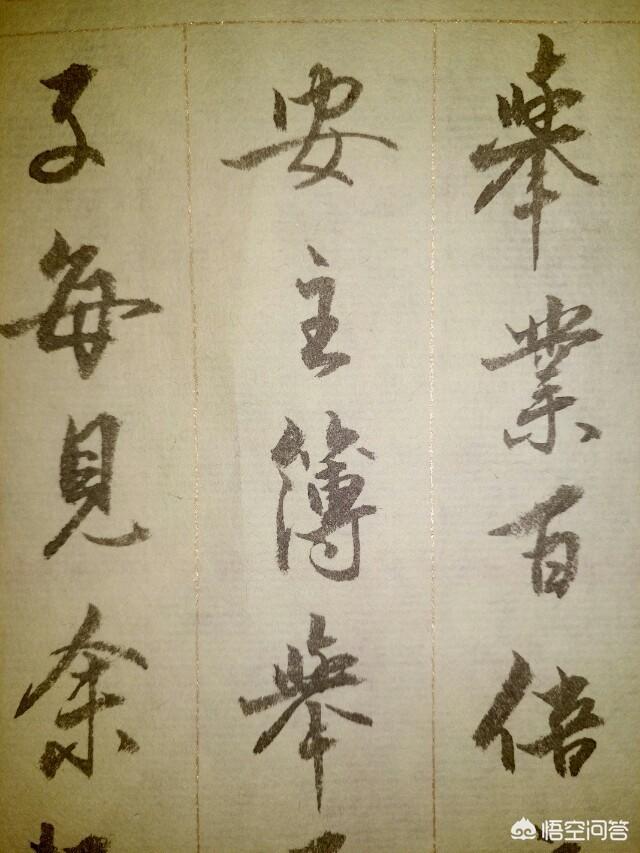 舉業百倍
安主簿舉
子每見余
悟空问答